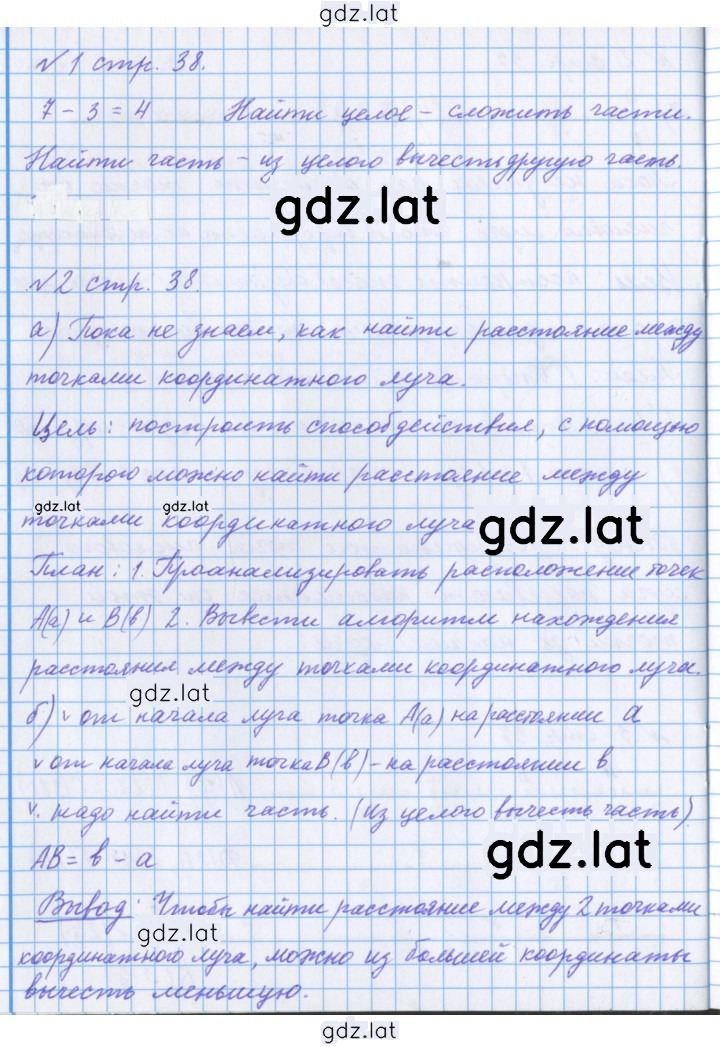 gdz.lat
№1 стр. 38.
7 - 3 = 4 Найти целое - сложить части.
Найти часть - из целого вычесть другую часть.
gdz.lat
№2 стр. 38.
а) Пока не знаем, как найти расстояние между
точками координатного луча.
Цель: построить способ действия, с помощью
которого можно найти расстояние между
gdz.lat gdz.lat
точками координатного луча
gdz.lat
План: 1. Проанализировать расположение точек
А(а) и В(в) 2. Вывести алгоритм нахождения
расстояния между точками координатного луча.
gdz.lat
б) v от начала луча точка А(а) на расстоянии а
v от начала луча точка В(в) - на расстоянии в
v. надо найти часть. (из целого вычесть часть)
АВ = в - а
gdz.lat
Вывод: Чтобы найти расстояние между 2 точками
gdz.lat
координатного луча, можно из большей координаты
вычесть меньшую.
gdz.lat